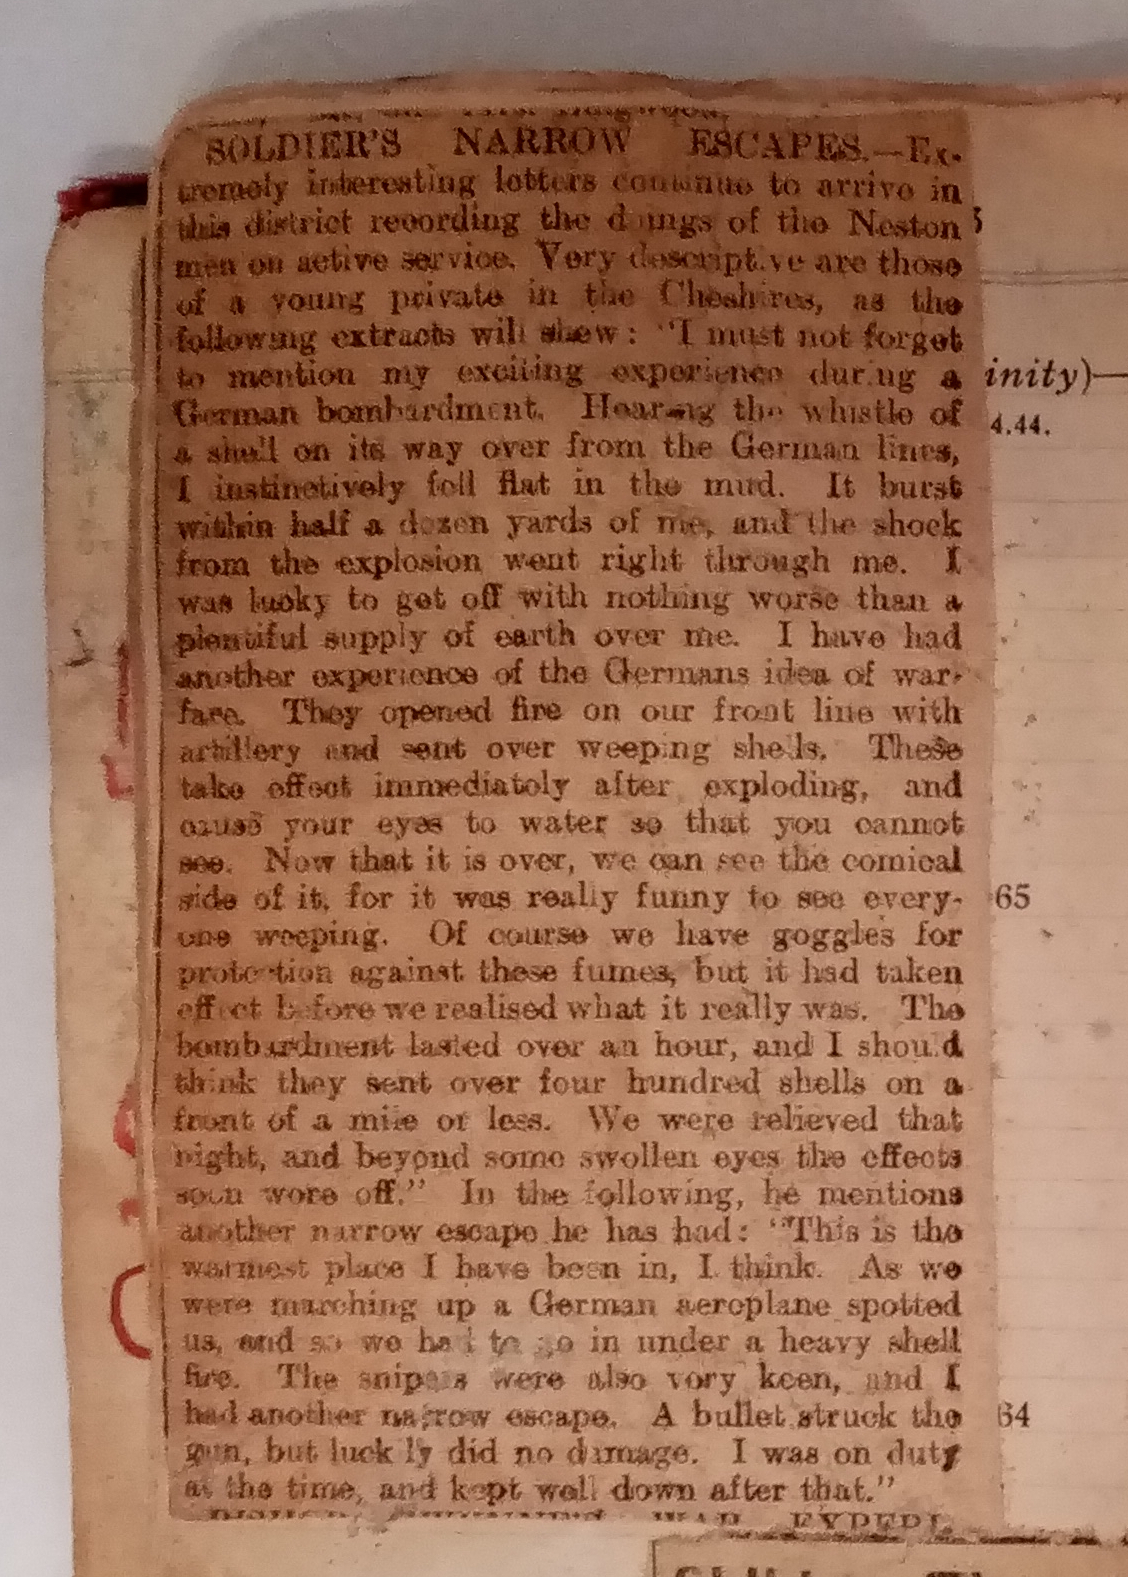 SOLDIER'S NARROW ESCAPES.—Ex-
tremely interesting letters continue to arrive in
this district recording the doings of the Neston
men on active service. Very descriptive are those
of a young private in the Cheshires, as the
following extracts will shew: "I must not forget
to mention my exciting experience during a
German bombardment. Hearing the whistle of
a shell on its way over from the German lines,
I instinctively fell flat in the mud. It burst
within half a dozen yards of me, and the shock
from the explosion went right through me. I
was lucky to get off with nothing worse than a
plentiful supply of earth over me. I have had
another experience of the Germans idea of war-
fare. They opened fire on our front line with
artillery and sent over weeping shells. These
take effect immediately after exploding, and
cause your eyes to water so that you cannot
see. Now that it is over, we can see the comical
side of it, for it was really funny to see every-
one weeping. Of course we have goggles for
protection against these fumes, but it had taken
effect before we realised what it really was. The
bombardment lasted over an hour, and I should
think they sent over four hundred shells on a
front of a mile or less. We were relieved that
night, and beyond some swollen eyes the effects
soon wore off." In the following, he mentions
another narrow escape he has had: "This is the
warmest place I have been in, I think. As we
were marching up a German aeroplane spotted
us, and so we had to go in under a heavy shell
fire. The snipers were also very keen, and I
had another narrow escape. A bullet struck the
gun, but luckily did no damage. I was on duty
at the time, and kept well down after that."
WAR EXPERI-
inity)—
4.44.
65
64